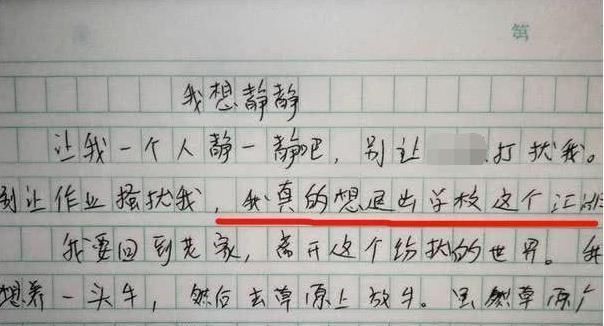 第
我想静静
让我一个人静一静吧，别让 打扰我。
别让作业骚扰我，我真的想退出学校这个江湖
我要回到老家，离开这个纷扰的世界。我
想养一头牛，然后去草原上放牛。虽然草原广